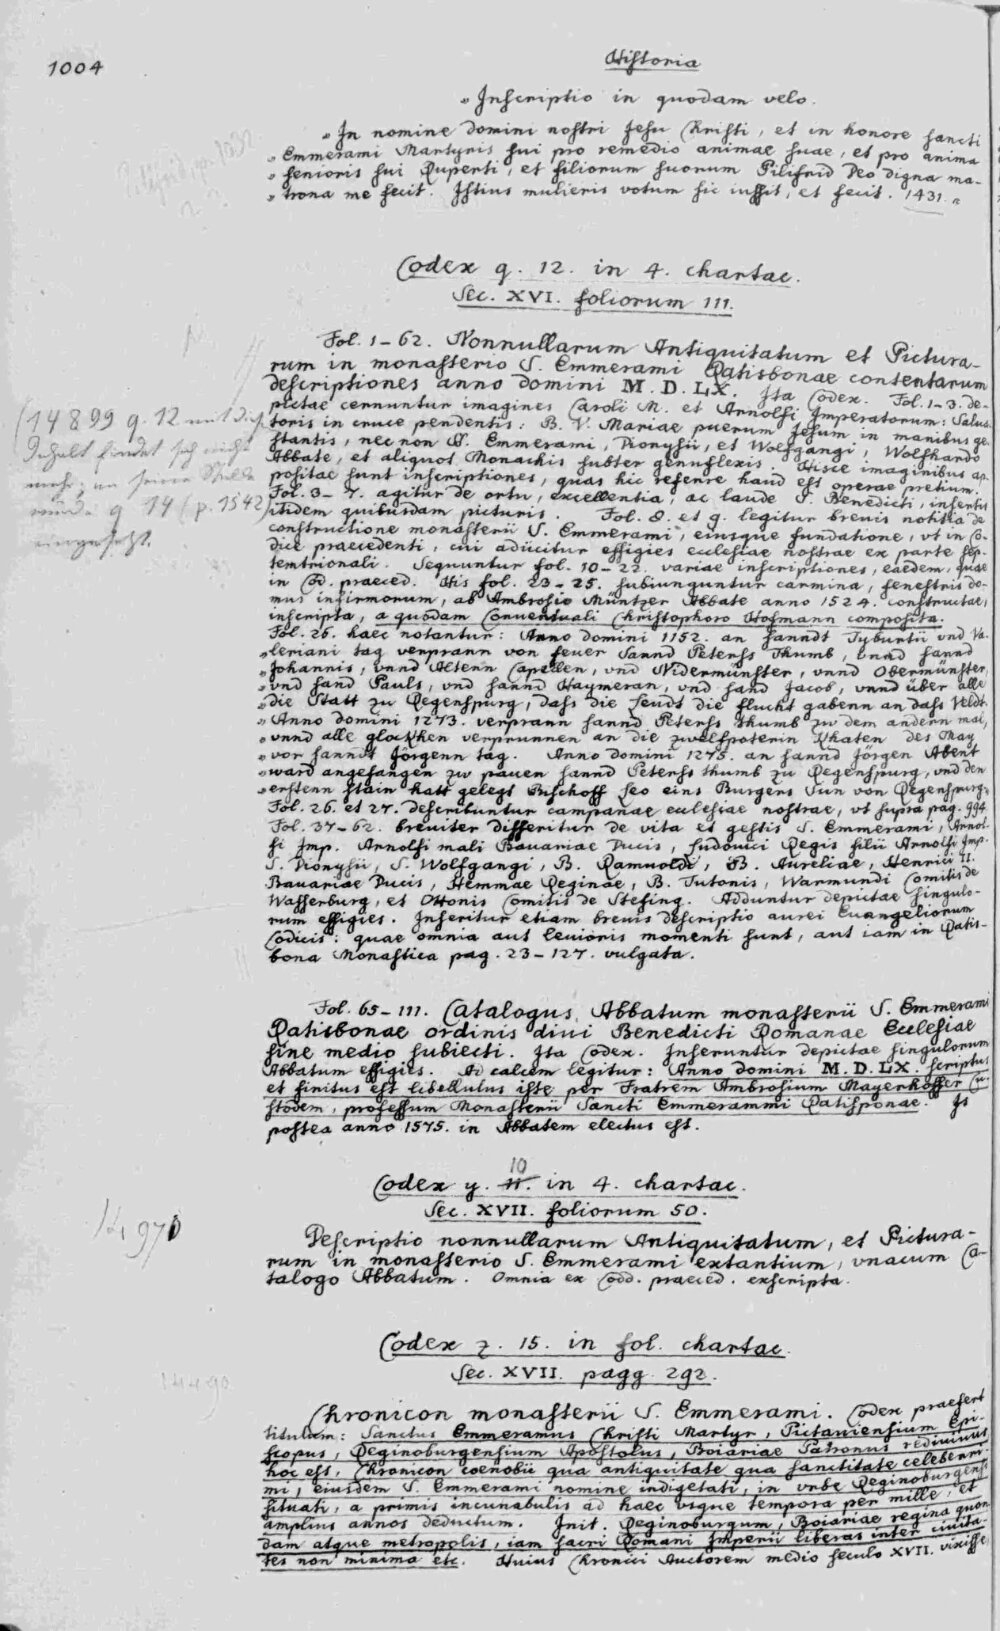 1004
Historia
"Inscriptio in quodam velo.
"In nomine domini nostri Jesu Christi, et in honore sancti
"Emmerami Martyris sui pro remedio animae suae, et pro anima
"senioris sui Ruperti, et filiorum suorum Pilifrid Deo digna ma-
"trona me fecit. Istius mulieris votum sic iussit, et fecit. 1431."
Codex q. 12. in 4. chartac.
Sec. XVI. foliorum 111.
Fol. 1-62. Nonnullarum Antiquitatum et Pictura-
rum in monasterio S. Emmerami Ratisbonae contentarum
descriptiones anno domini M.D.LX. Ita Codex. Fol. 1-3. de-
pictae cernuntur imagines Caroli M. et Arnolfi Imperatorum: Salua-
toris in cruce pendentis: B. V. Mariae puerum Jesum in manibus ge-
stantis, nec non S. Emmerami, Dionysii, et Wolfgangi, Wolfhardo
Abbate, et aliquot Monachis subter genuflexis. Hisce imaginibus ap-
positae sunt inscriptiones, quas hic referre haud est operae pretium.
Fol. 3-7. agitur de ortu, excellentia, ac laude S. Benedicti, insertis
itidem quibusdam picturis. Fol. 8. et 9. legitur breuis notitia de
constructione monasterii S. Emmerami, eiusque fundatione, vt in Co-
dice praecedenti, cui adiicitur effigies ecclesiae nostrae ex parte sep-
temtrionali. Sequuntur fol. 10-22. variae inscriptiones, eaedem, quae
in Cod. praeced. His fol. 23-25. subiunguntur carmina, fenestris do-
mus infirmorum, ab Ambrosio Müntzer Abbate anno 1524. constructae,
inscripta, a quodam Conuentuali Christophoro Hofmann composita.
Fol. 26. haec notantur: Anno domini 1152. an sanndt Tyburtii vnd Va-
"leriani tag verprann von feuer Sannd Peterss Thumb, vnnd sannd
"Johannis, vnnd Altenn Capellen, vnd Nidermünster, vnnd Obermünster,
"vnd sand Pauls, vnd sannd Haymeran, vnd sand Jacob, vnnd über alle
"die Statt zu Regenspurg, dass die Leudt die flucht gabenn an dass Veldt.
"Anno domini 1273. verprann sannd Peterss thumb zw dem andern mal,
"vnnd alle glockhen verprunnen an die zwelfpoterin Khaten des May
"vor sanndt Jörgenn tag. Anno domini 1275. an sannd Jörgen Abent
"ward angefangen zw pauen sannd Peterss thumb zu Regenspurg, vnd den
"erstenn stain hatt gelegt Bischoff Leo eins Burgers Sun von Regenspurg."
Fol. 26. et 27. describuntur campanae ecclesiae nostrae, vt supra pag. 994.
Fol. 37-62. breuiter disseritur de vita et gestis S. Emmerami, Arnol-
fi Imp. Arnolfi mali Bauariae Ducis, Ludouici Regis filii Arnolfi Imp.
S. Dionysii, S. Wolfgangi, B. Ramuoldi, B. Aureliae, Henrici II.
Bauariae Ducis, Hemmae Reginae, B. Tutonis, Warmundi Comitis de
Wasserburg, et Ottonis Comitis de Stefing. Adduntur depictae singulo-
rum effigies. Inseritur etiam breuis descriptio aurei Euangeliorum
Codicis: quae omnia aut leuioris momenti sunt, aut iam in Ratis-
bona Monastica pag. 23-127. vulgata.
(14899 q. 12 mit diesem
Inhalt findet sich nicht
mehr; an seiner Stelle
wurde q 14 (p. 1542)
eingesetzt.
Fol. 65-111. Catalogus Abbatum monasterii S. Emmerami
Ratisbonae ordinis diui Benedicti Romanae Ecclesiae
sine medio subiecti. Ita Codex. Inseruntur depictae singulorum
Abbatum effigies. Ad calcem legitur: Anno domini M.D.LX. scriptus
et finitus est libellulus iste per Fratrem Ambrosium Mayerhoffer Cu-
stodem, professum Monasterii Sancti Emmerammi Ratisponae. Is
postea anno 1575. in Abbatem electus est.
Codex y. 10 11. in 4. chartac.
Sec. XVII. foliorum 50.
14970
Descriptio nonnullarum Antiquitatum, et Pictura-
rum in monasterio S. Emmerami extantium, vnacum Ca-
talogo Abbatum. Omnia ex Codd. praeced. exscripta.
Codex z. 15. in fol. chartac.
Sec. XVII. pagg. 292.
14490
Chronicon monasterii S. Emmerami. Codex praefert
titulum: Sanctus Emmeramus Christi Martyr, Pictauiensium Epi-
scopus, Reginoburgensium Apostolus, Boiariae Patronus rediuiuus,
hoc est, Chronicon coenobii qua antiquitate qua sanctitate celeberri-
mi, eiusdem S. Emmerami nomine indigetati, in vrbe Reginoburgensi
situati, a primis incunabulis ad haec vsque tempora per mille, et
amplius annos deductum. Init. Reginoburgum, Boiariae regina quon-
dam atque metropolis, iam sacri Romani Imperii liberas inter ciuita-
tes non minima etc. Huius Chronici Auctorem medio seculo XVII. vixisse,